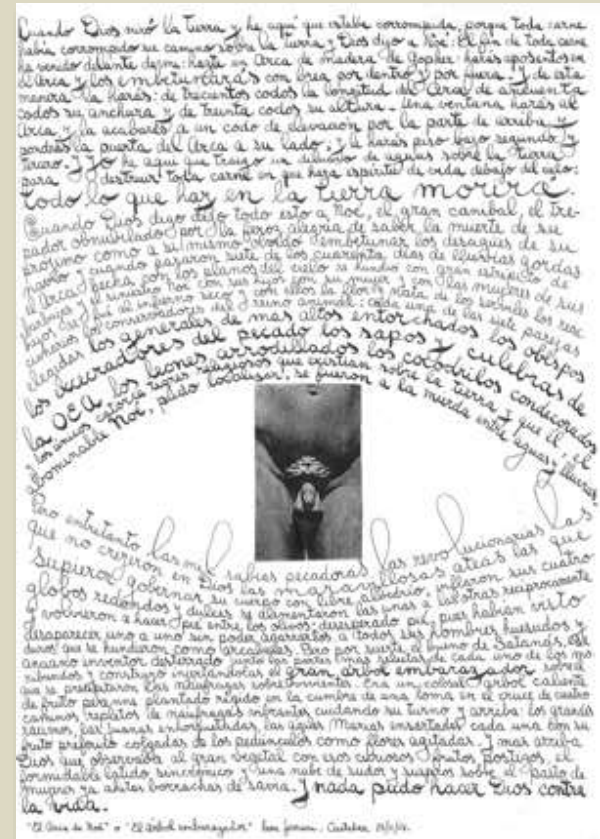 Cuando Dios miró la tierra y he aquí que estaba corrompida, porque toda carne
había corrompido su camino sobre la tierra y Dios dijo a Noé: El fin de toda carne
ha venido delante de mi: hazte un Arca de madera de Gopher: harás aposentos en
el Arca y los embetunarás con brea por dentro y por fuera. Y de esta
manera la harás: de trecientos codos la longitud del Arca, de cincuenta
codos su anchura y de treinta codos su altura. Una ventana harás al
Arca y la acabarás a un codo de elevación por la parte de arriba y
pondrás la puerta del Arca a su lado, y la harás piso bajo segundo y
tercero. Y Yo he aquí que traigo un diluvio de aguas sobre la tierra
para destruir toda carne en que haya espíritu de vida debajo del cielo:
todo lo que hay en la tierra morirá.
Cuando Dios dijo todo esto a Noé, el gran canibal, el tre-
pador obnubilado por la feroz alegría de saber la muerte de su
prójimo como a su mismo olvidó embetunar los desagües de su
navío y cuando pasaron siete de los cuarenta días de lluvias gordas
el Arca hecha con los planos del cielo se hundió con gran estrépito de
y el siniestro Noé con sus hijos con su mujer y con las mujeres de sus
hijos se fué al infierno seco y con ellos la flor y nata de los
los conservadores del reino animal: cada una de las siete parejas
elegidas los generales de mas altos entorchados los obispos
los del pecado los sapos y culebras de
la OEA los leones arrodillados los cocodrilos condecorados
y los únicos catorce tigres religiosos que existian sobre la tierra y que él, el
abominable Noé, pudo localizar, se fueron a la mierda entre y lluvias.
Pero entretanto las mil sabias pecadoras las revolucionarias las
que no creyeron en Dios las maravillosas ateas las que
supieron gobernar su cuerpo con libre albedrío, inflaron sus cuatro
globos redondos y dulces se alimentaron las unas a las otras reciprocamente
y volvieron a hacer pie entre los olivos: desesperado pié, pues habían visto
desaparecer uno a uno sin poder agarrarlos a todos sus hombres huesudos y
duros que se hundieron como arcángeles. Pero por suerte, el bueno de Satanás, ese
anciano inventor desterrado juntó las partes mas selectas de cada uno de los mo-
ribundos y construyó injertándolas el gran árbol embarazador sobre el
que se precipitaron las náufragas sobrevivientes. Era un colosal árbol caliente
de fruto perenne plantado rígido en la cumbre de una loma en el cruce de cuatro
caminos repletos de náufragas cuidando su turno y arriba: los grandes
racimos, las Juanas enhorquetadas, las ágiles Marías ensartadas cada una con su
fruto preferido colgadas de los pedúnculos como flores agitadas. Y mas arriba
Dios que observaba al gran vegetal con esos curiosos frutos postizos, el
formidable latido sincrónico y una nube de sudor y suspiros sobre el pasto de
mujeres ya ahitas borrachas de savia. Y nada pudo hacer Dios contra
la vida.
"El Arca de Noé" o "El árbol embarazador" león ferrari. Castelar